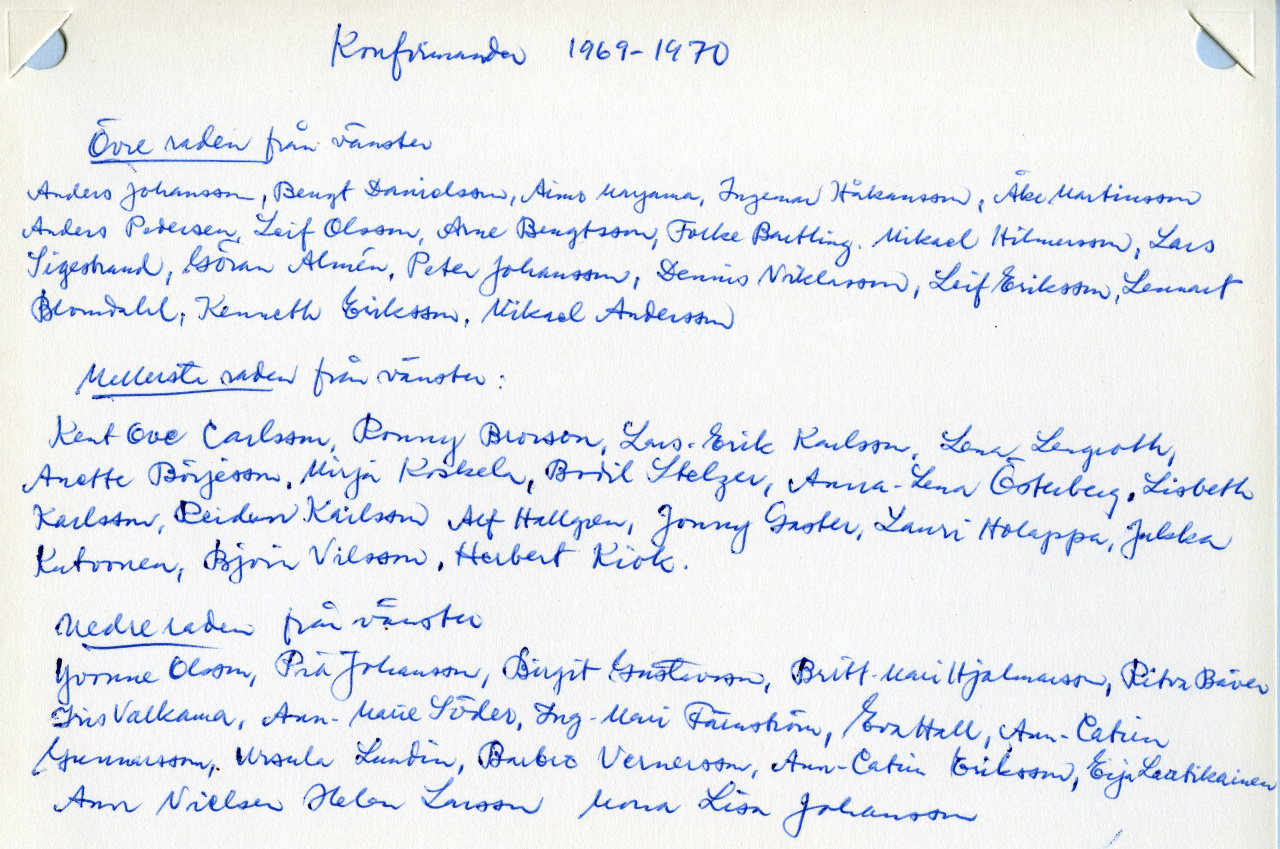 Konfirmander 1969-1970
Övre raden från vänster
Anders Johansson, Bengt Danielsson, Aimo Marjama, Ingemar Håkansson, Åke Martinsson
Anders Pedersen, Leif Olsson, Arne Bengtsson, Folke Bartling. Mikael Hilmersson, Lars
Sigestrand, Göran Almén, Peter Johansson, Dennis Niklasson, Leif Eriksson, Lennart
Blomdahl, Kenneth Eriksson, Mikael Andersson
Mellersta raden från vänster:
Kent Ove Carlsson, Ronny Brorson, Lars-Erik Karlsson, Lena Lengroth,
Anette Börjesson, Mirja Koskela, Bodil Stelzer, Anna-Lena Österberg, Lisbeth
Karlsson, Reidun Karlsson Alf Hallgren, Jonny Gaster, Lauri Holappa, Jukka
Kutvonen, Björn Nilsson, Herbert Kiok.
Nedre raden från vänster
Yvonne Olsson, Pia Johansson, Birgit Gustavsson, Britt-Mari Hjalmarsson, Ritva Bäver
Iris Valkama, Ann-Marie Söder, Ing-Mari Färnström, Eva Hall, Ann-Catrin
Gunnarsson, Ursula Lundin, Barbro Vernersson, Ann-Catrin Eriksson, Eija Laatikainen
Ann Nielsen Helen Larsson Mona Lisa Johansson